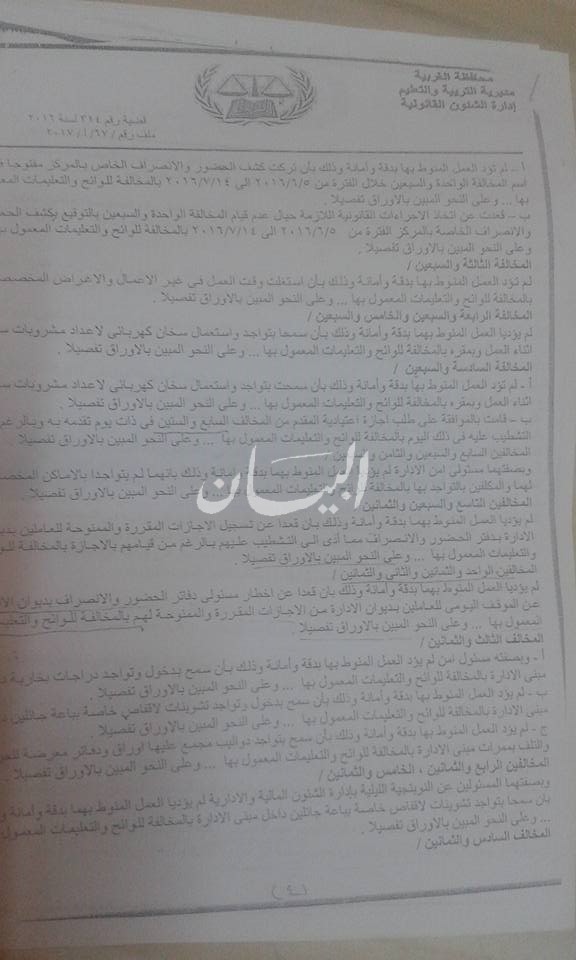 محافظة الغربية
مديرية التربية والتعليم
إدارة الشئون القانونية
قضية رقم ٣١٤ لسنة ٢٠١٦
ملف رقم / ٦٧ / أ / ٢٠١٧
أ – لم تؤد العمل المنوط بها بدقة وأمانة وذلك بأن تركت كشف الحضور والانصراف الخاص بالمركز مفتوحا
اسم المخالفة الواحدة والسبعين خلال الفترة من ٢٠١٦/٦/٥ الى ٢٠١٦/٧/١٤ بالمخالفة للوائح والتعليمات
بها ... وعلى النحو المبين بالاوراق تفصيلا .
ب – قعدت عن اتخاذ الاجراءات القانونية اللازمة حيال عدم قيام المخالفة الواحدة والسبعين بالتوقيع بكشف
والانصراف الخاصة بالمركز الفترة من ٢٠١٦/٦/٥ الى ٢٠١٦/٧/١٤ بالمخالفة للوائح والتعليمات المعمول
وعلى النحو المبين بالاوراق تفصيلا .
المخالفة الثالثة والسبعين /
لم تؤد العمل المنوط بها بدقة وأمانة وذلك بأن استغلت وقت العمل فى غير الاعمال والاغراض
بالمخالفة للوائح والتعليمات المعمول بها ... وعلى النحو المبين بالاوراق تفصيلا .
المخالفة الرابعة والسبعين والخامس والسبعين /
لم يؤديا العمل المنوط بهما بدقة وأمانة وذلك بأن سمحا بتواجد واستعمال سخان كهربائى لاعداد مشروبات
اثناء العمل وبمقره بالمخالفة للوائح والتعليمات المعمول بها ... وعلى النحو المبين بالاوراق تفصيلا .
المخالفة السادسة والسبعين /
أ – لم تؤد العمل المنوط بها بدقة وأمانة وذلك بأن سمحت بتواجد واستعمال سخان كهربائى لاعداد مشروبات
اثناء العمل وبمقره بالمخالفة للوائح والتعليمات المعمول بها ... وعلى النحو المبين بالاوراق تفصيلا .
ب – قامت بالموافقة على طلب اجازة اعتيادية المقدم من المخالف السابع والستين فى ذات يوم تقدمه به وبالرغم
التشطيب عليه فى ذلك اليوم بالمخالفة للوائح والتعليمات المعمول بها ... وعلى النحو المبين بالاوراق تفصيلا .
المخالفين السابع والسبعين والثامن والسبعين /
وبصفتهما مسئولى امن الادارة لم يؤديا العمل المنوط بهما بدقة وأمانة وذلك بانهما لم يتواجدا بالاماكن
لهما والمكلفين بالتواجد بها بالمخالفة للوائح والتعليمات المعمول بها ... وعلى النحو المبين بالاوراق تفصيلا .
المخالفين التاسع والسبعين والثمانين /
لم يؤديا العمل المنوط بهما بدقة وأمانة وذلك بان قعدا عن تسجيل الاجازات المقررة والممنوحة للعاملين
الادارة بدفتر الحضور والانصراف مما أدى الى التشطيب عليهم بالرغم من قيامهم بالاجازة بالمخالفة
والتعليمات المعمول بها ... وعلى النحو المبين بالاوراق تفصيلا .
المخالفين الواحد والثمانين والثانى والثمانين /
لم يؤديا العمل المنوط بهما بدقة وأمانة وذلك بان قعدا عن اخطار مسئولى دفاتر الحضور والانصراف بديوان
عن الموقف اليومى للعاملين بديوان الادارة من الاجازات المقررة والممنوحة لهم بالمخالفة للوائح
المعمول بها ... وعلى النحو المبين بالاوراق تفصيلا .
المخالف الثالث والثمانين /
أ – وبصفته مسئول امن لم يؤد العمل المنوط بها بدقة وأمانة وذلك بأن سمح بدخول وتواجد دراجات بخارية
مبنى الادارة بالمخالفة للوائح والتعليمات المعمول بها ... وعلى النحو المبين بالاوراق تفصيلا .
ب – لم يؤد العمل المنوط بها بدقة وأمانة وذلك بأن سمح بدخول وتواجد تشوينات لاقفاص خاصة بباعة جائلين
مبنى الادارة بالمخالفة للوائح والتعليمات المعمول بها ... وعلى النحو المبين بالاوراق تفصيلا .
ج – لم يؤد العمل المنوط بها بدقة وأمانة وذلك بأن سمح بتواجد دواليب مجمع عليها اوراق ودفاتر معرضة
والتلف بممرات مبنى الادارة بالمخالفة للوائح والتعليمات المعمول بها ... وعلى النحو المبين بالاوراق تفصيلا .
المخالفين الرابع والثمانين ، الخامس والثمانين /
وبصفتهما المسئولين عن النوبتجية الليلية بإدارة الشئون المالية والادارية لم يؤديا العمل المنوط بهما بدقة وأمانة
بان سمحا بتواجد تشوينات لاقفاص خاصة بباعة جائلين داخل مبنى الادارة بالمخالفة للوائح والتعليمات المعمول
... وعلى النحو المبين بالاوراق تفصيلا .
المخالف السادس والثمانين /
البيان